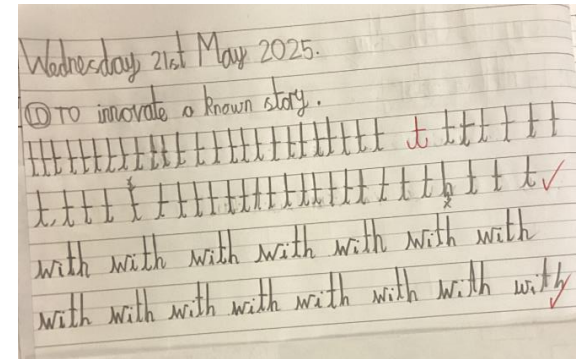 Wednesday 21st May 2025.
Ⓛ To innovate a known story.
t t t t t t t t t t t t t t t t t t t t t t t t t t t t t t t t t
t t t t t t t t t t t t t t t t t t t t t t t h t t t
with with with with with with with
with with with with with with with with